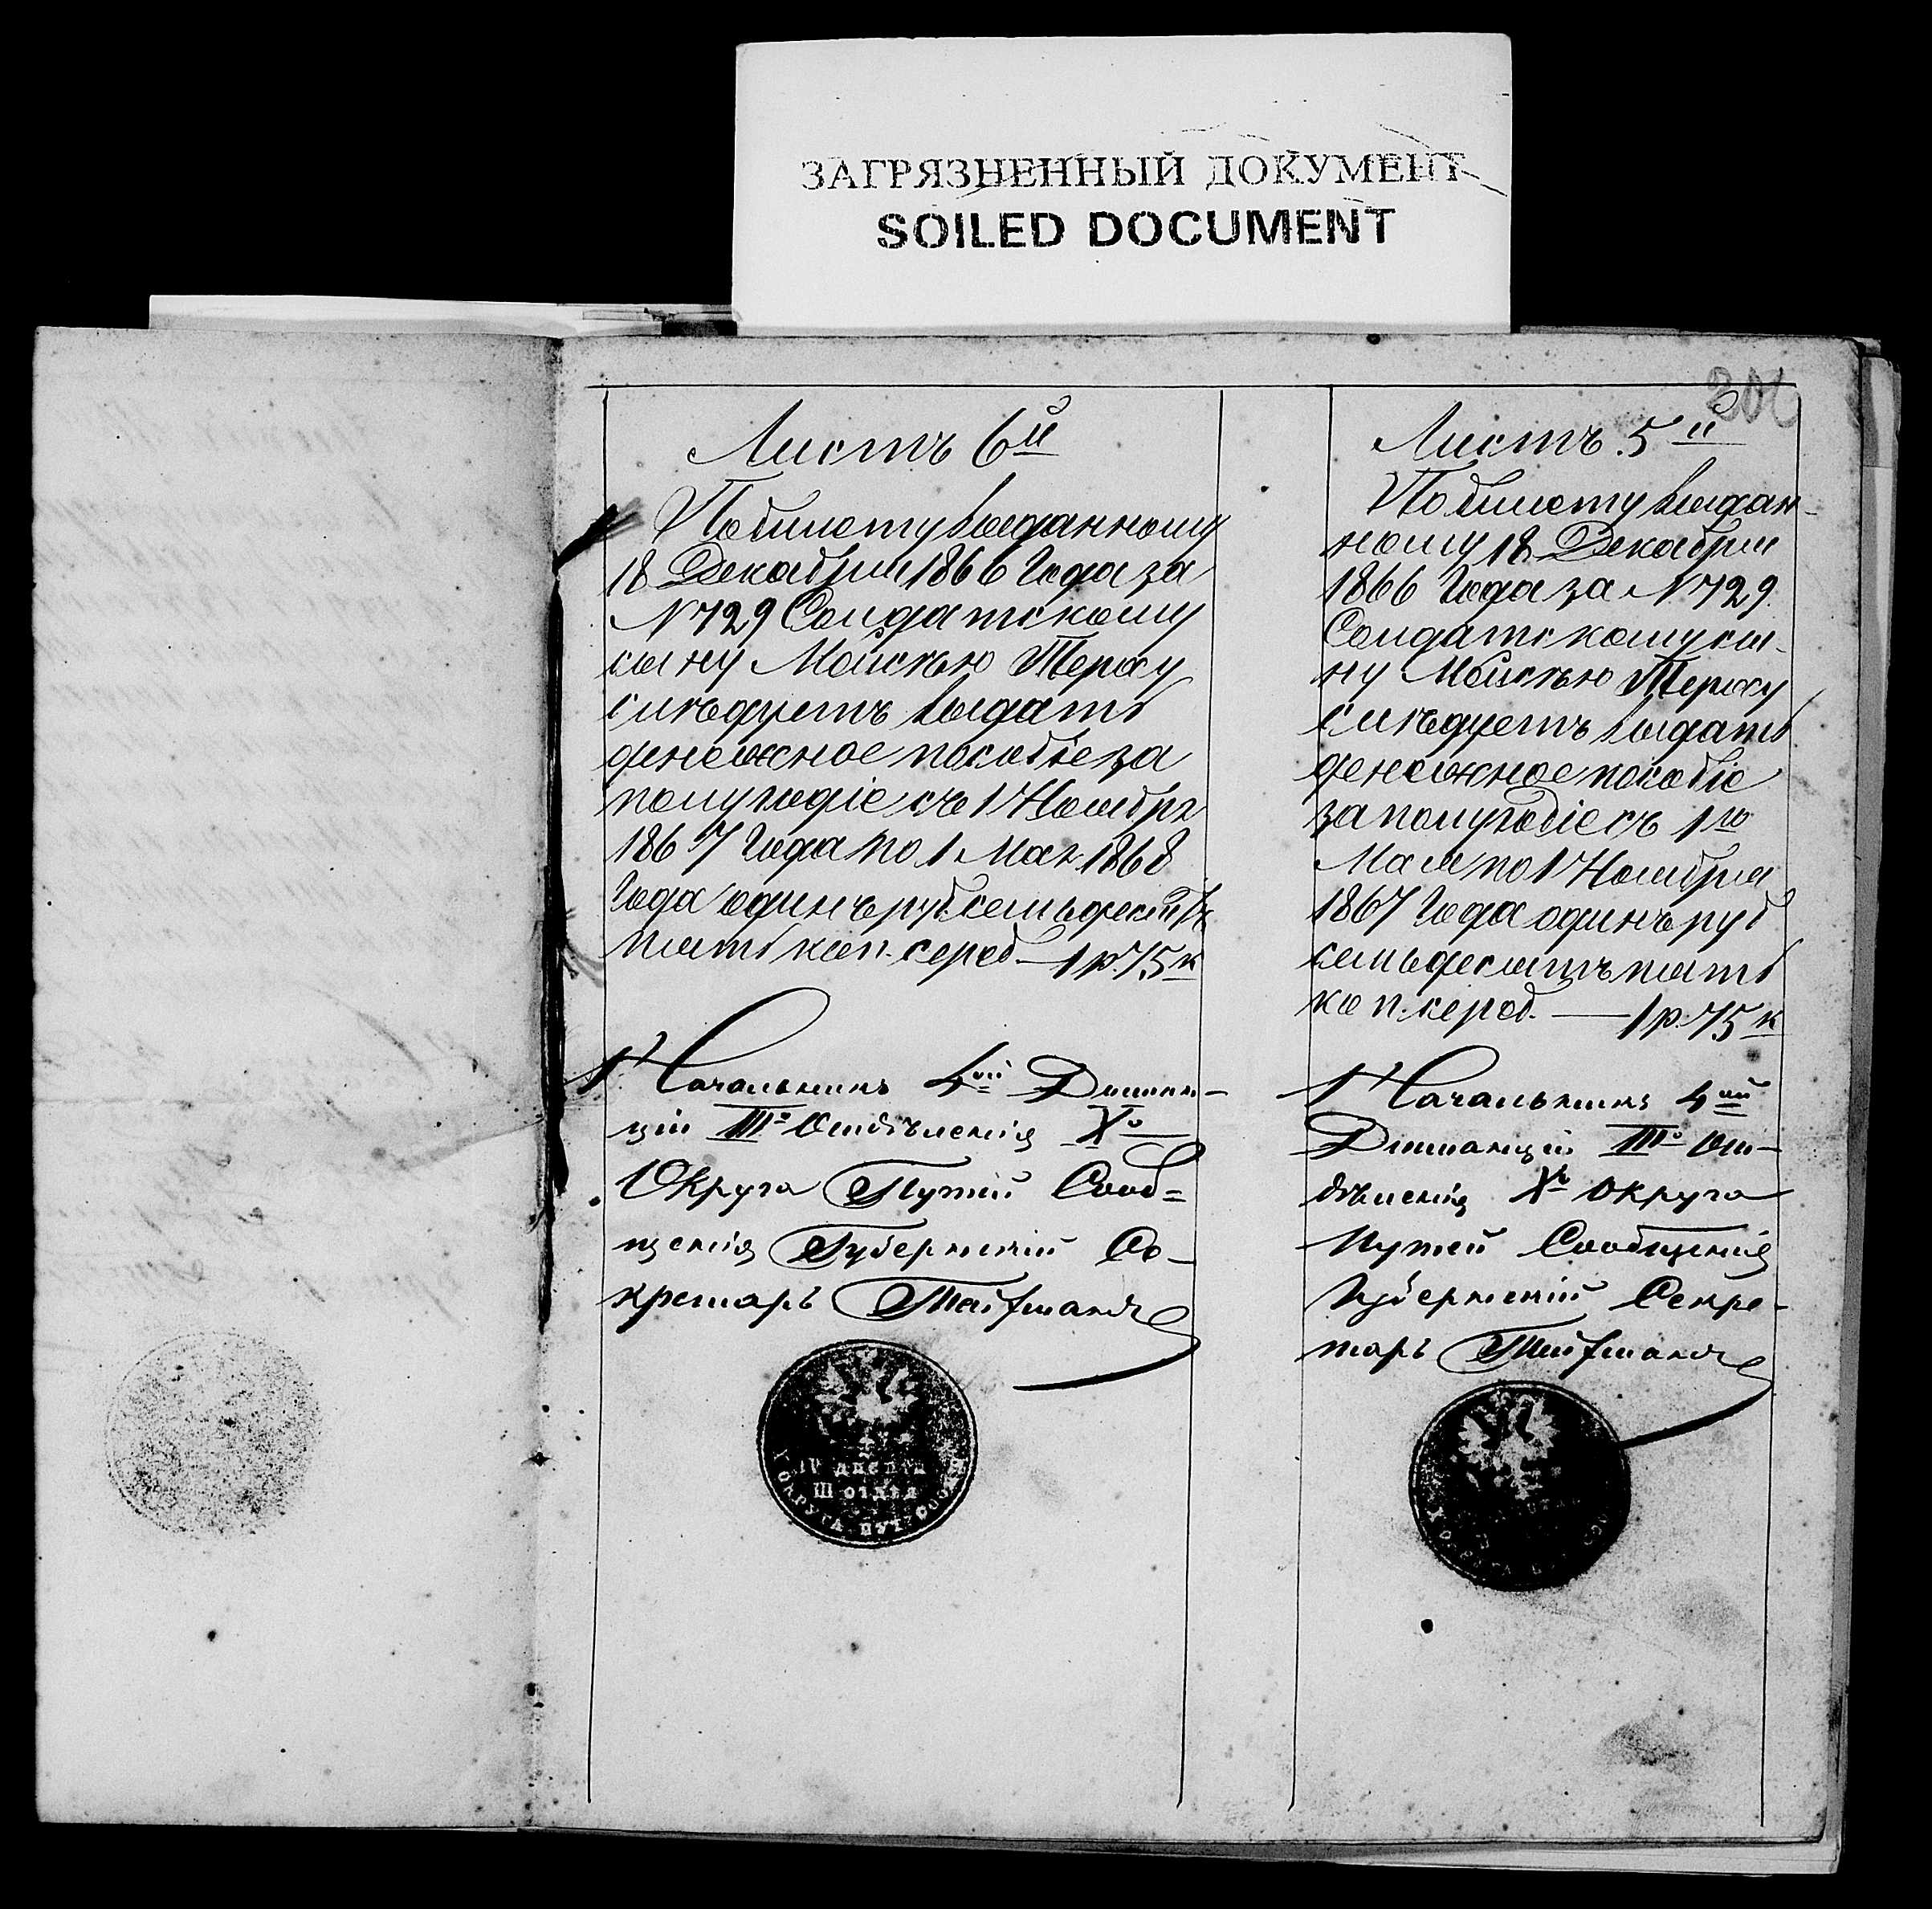 ЗАГРЯЗНЕННЫЙ ДОКУМЕНТ
SOILED DOCUMENT
Листъ 6й
По билету выданному
18 Декабря 1866 Года за
№ 729 Солдатскому
сыну Моисѣю Тероху
слѣдуетъ выдать
денежное пособіе за
полугодіе съ 1 Ноября
1867 Года по 1 Мая 1868
Года одинъ руб. семьдесятъ
пять коп. сереб. — 1 р. 75 к
Начальникъ 4ой Дистан-
ціи IIIго Отдѣленія Хго
Округа Путей Сооб=
щенія Губернскій Се-
кретарь
IV ДИСТАН
III ОТДѢЛ
X ОКРУГА ПУТ. СООБЩ
Листъ 5й
По билету выдан-
ному 18 Декабря
1866 Года за № 729
Солдатскому сы-
ну Моисѣю Тероху
слѣдуетъ выдать
денежное пособіе
за полугодіе съ 1го
Мая по 1 Ноября
1867 Года одинъ руб
семьдесятъ пять
коп. сереб. — 1 р. 75 к
Начальникъ 4ой
Дистанціи IIIго От-
дѣленія Хго Округа
Путей Сообщенія
Губернскій Секре-
тарь